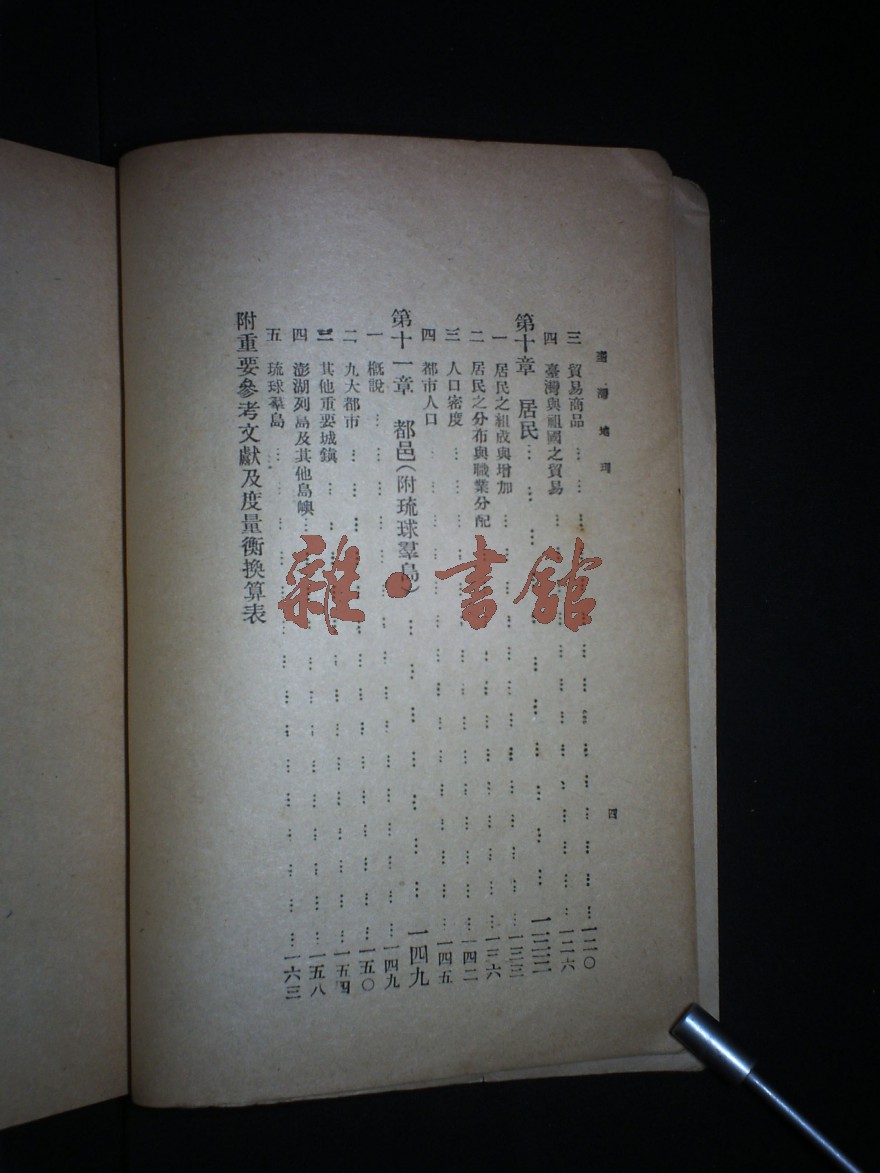 臺灣地理
四
三 貿易商品 …… 一二〇
四 臺灣與祖國之貿易 …… 一二六
第十章 居民 …… 一三三
一 居民之組成與增加 …… 一三三
二 居民之分布與職業分配 …… 一三六
三 人口密度 …… 一四二
四 都市人口 …… 一四五
第十一章 都邑(附琉球羣島) …… 一四九
一 概說 …… 一四九
二 九大都市 …… 一五〇
三 其他重要城鎮 …… 一五四
四 澎湖列島及其他島嶼 …… 一五八
五 琉球羣島 …… 一六三
附重要參考文獻及度量衡換算表
雜·書館